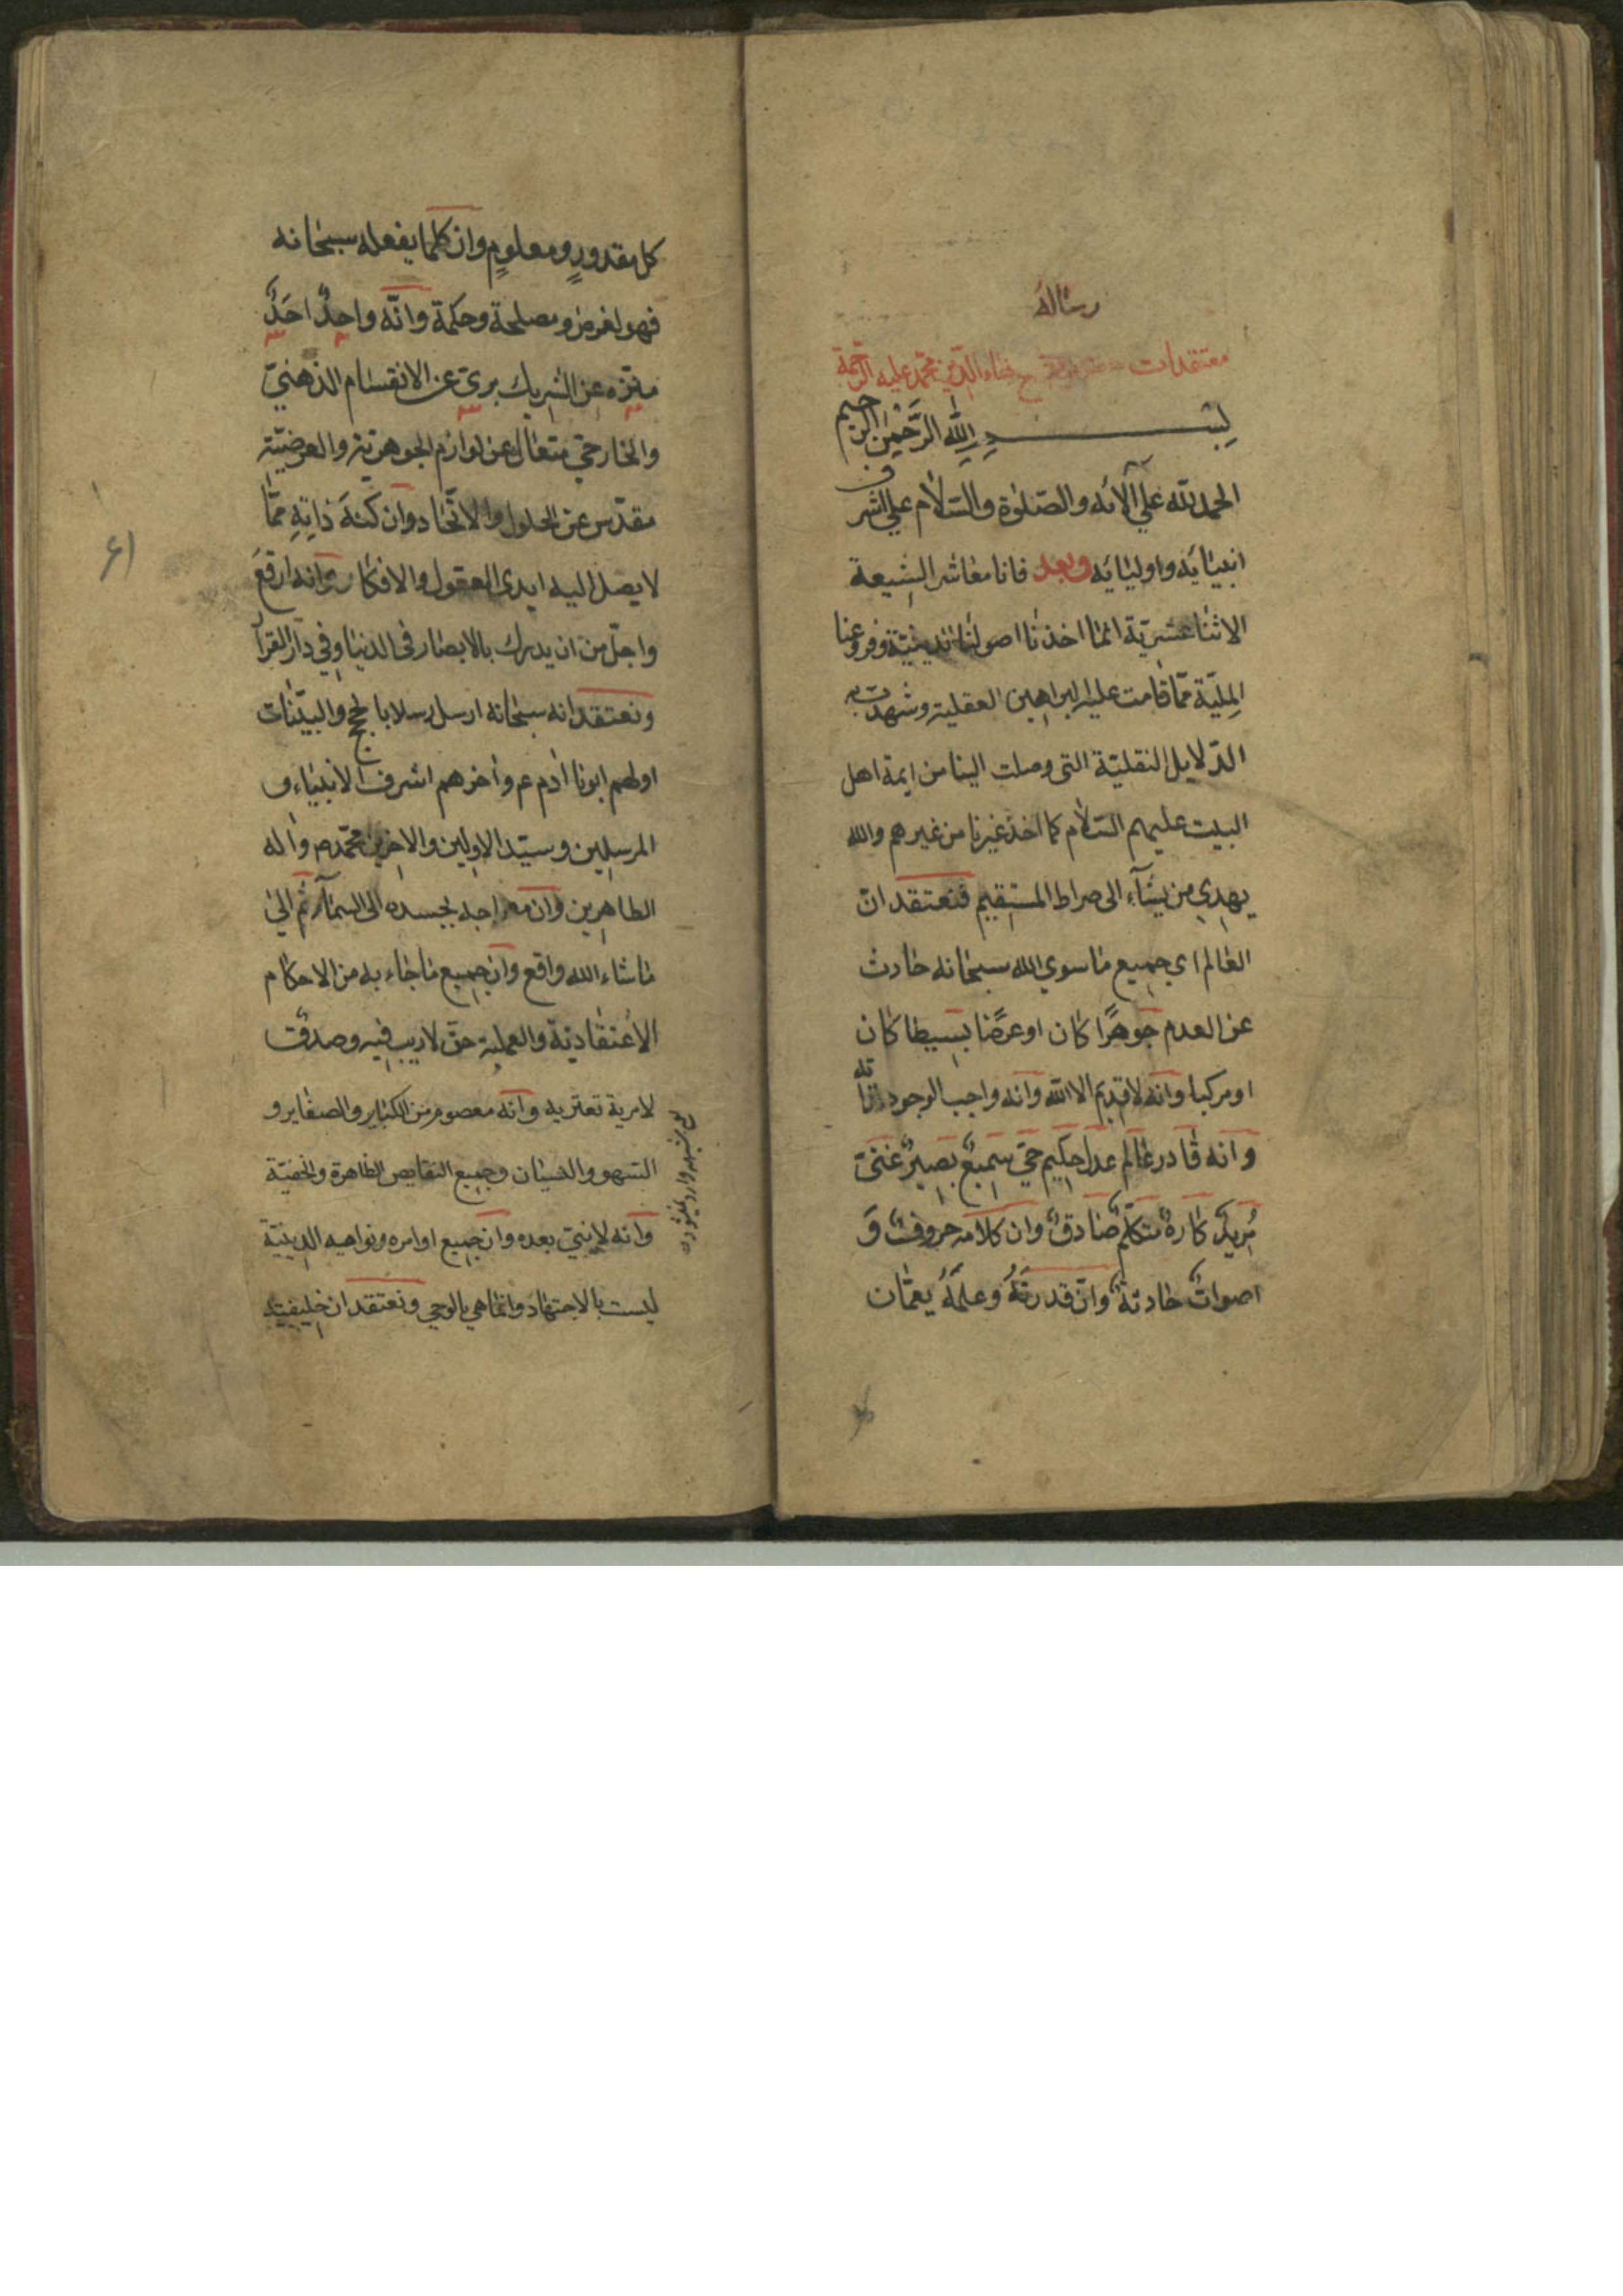 رساله
معتقدات بهاء الدين محمد عليه الرحمة
بسم الله الرحمن الرحيم
الحمد لله علي آلائه والصلوة والسلام علي اشرف
انبيائه واوليائه وبعد فانا معاشر الشيعة
الاثنا عشرية انما اخذنا اصولنا الدينية وفروعنا
الملية مما قامت عليه البراهين العقلية وشهدت به
الدلايل النقلية التى وصلت الينا من ايمة اهل
البيت عليهم السلام كما اخذ غيرنا من غيرهم والله
يهدي من يشآء الى صراط المستقيم فنعتقد ان
العالم اي جميع ما سوي الله سبحانه حادث
عن العدم جوهرًا كان او عرضًا بسيطا كان
او مركبا وانه لا قديم الا الله وانه واجب الوجود لذاته
وانه قادر عالم عدل حكيم حي سميع بصير غنى
مريد كاره متكلم صادق وان كلامه حروف و
اصوات حادثة وان قدرته وعلمه يعمان
كل مقدورٍ ومعلومٍ وان كلما يفعله سبحانه
فهو لغرض ومصلحة وحكمة وانّه واحدٌ احَدٌ
منزه عن الشريك برى عن الانقسام الذهنى
والخارجي متعال عن لوازم الجوهرية والعرضية
مقدس عن الحلول والاتحاد وان كنهَ ذاتِهِ ممّا
لا يصل اليه ايدى العقول والافكار وانه ارفع
واجلّ من ان يدرك بالابصار فى الدنيا وفي دار القرآ
ونعتقد انه سبحانه ارسل رسلا بالحجج والبينات
اولهم ابونا آدم عم وآخرهم اشرف الانبياء و
المرسلين وسيد الاولين والاخرين محمد ص وآله
الطاهرين وان معراجه بجسده الى السمآء ثم الى
ما شاء الله واقع وان جميع ما جاء به من الاحكام
الاعتقادية والعملية حق لا ريب فيه وصدق
لا مرية تعتريه وانه معصوم من الكباير والصغاير و
السهو والنسيان وجميع النقايص الظاهرة والخفية
وانه لا نبي بعده وان جميع اوامره ونواهيه الدينية
ليست بالاجتهاد وانما هي بالوحي ونعتقد ان خليفته
٦١